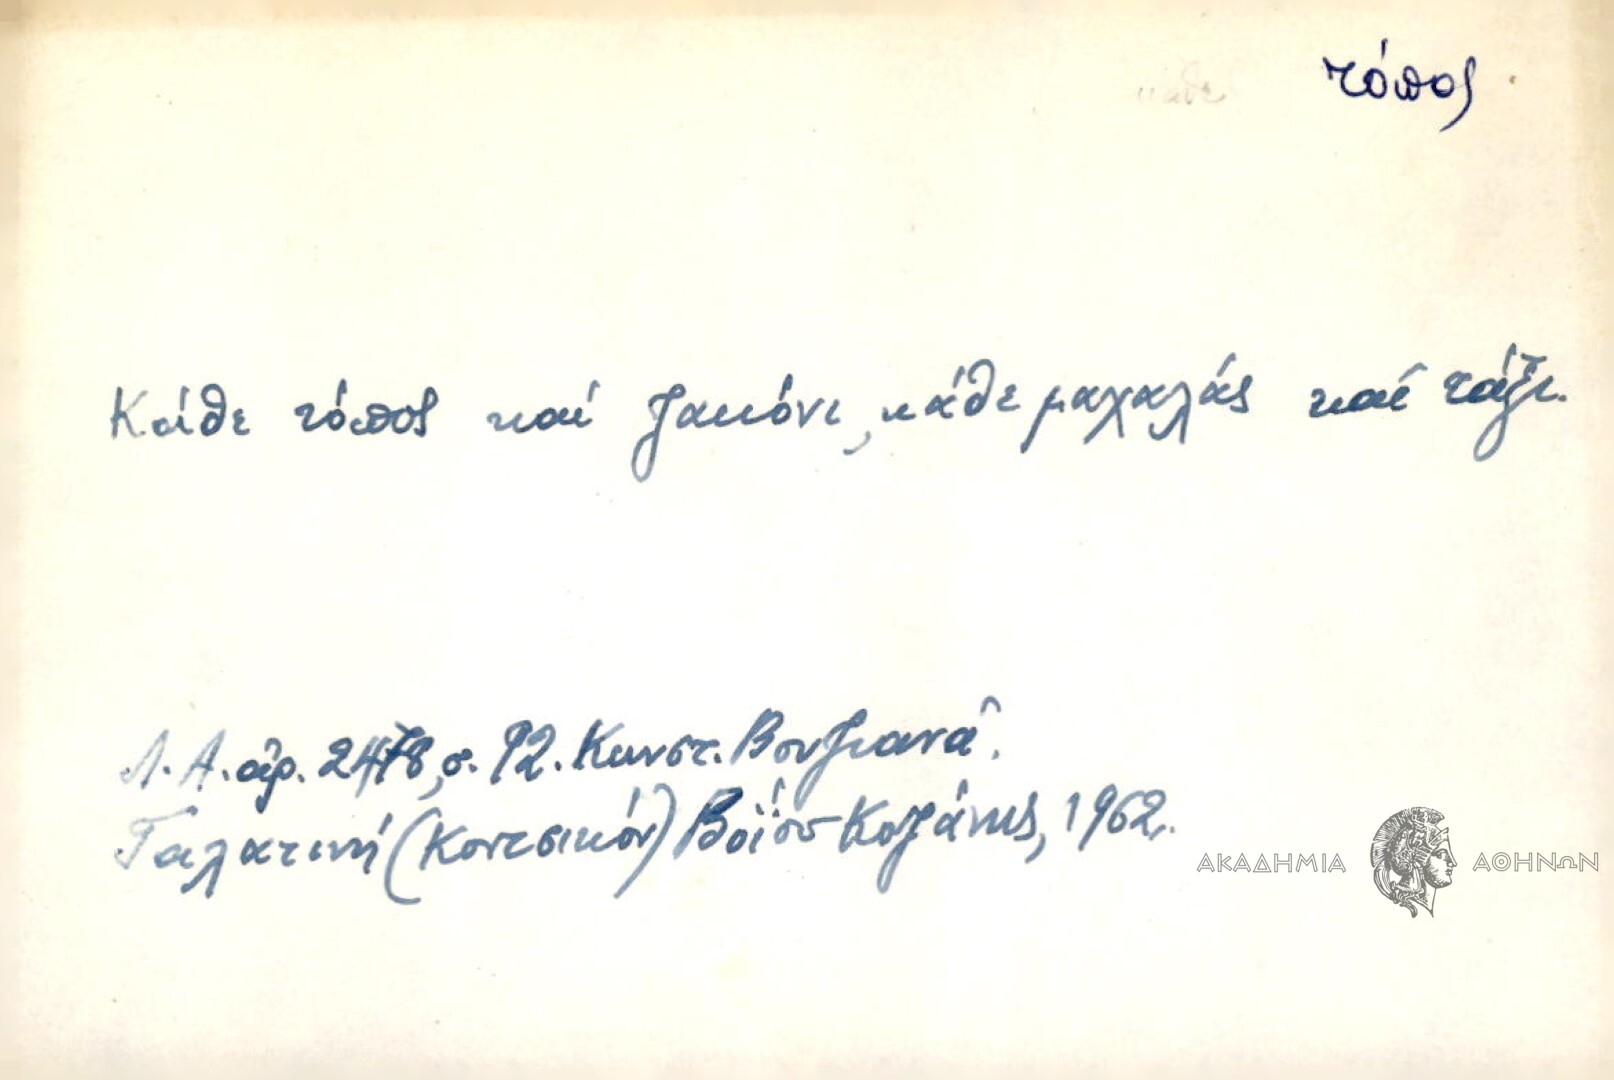 κάθε τόπος
Κάθε τόπος καί ζακόνι, κάθε μαχαλάς καί τάξι.
Λ. Α. ἀρ. 2478, σ. 92. Κωνστ. Βουζιανᾶ.
Γαλατινή (Κοντσικόν) Βοΐου Κοζάνης, 1962.
ΑΚΑΔΗΜΙΑ ΑΘΗΝΩΝ